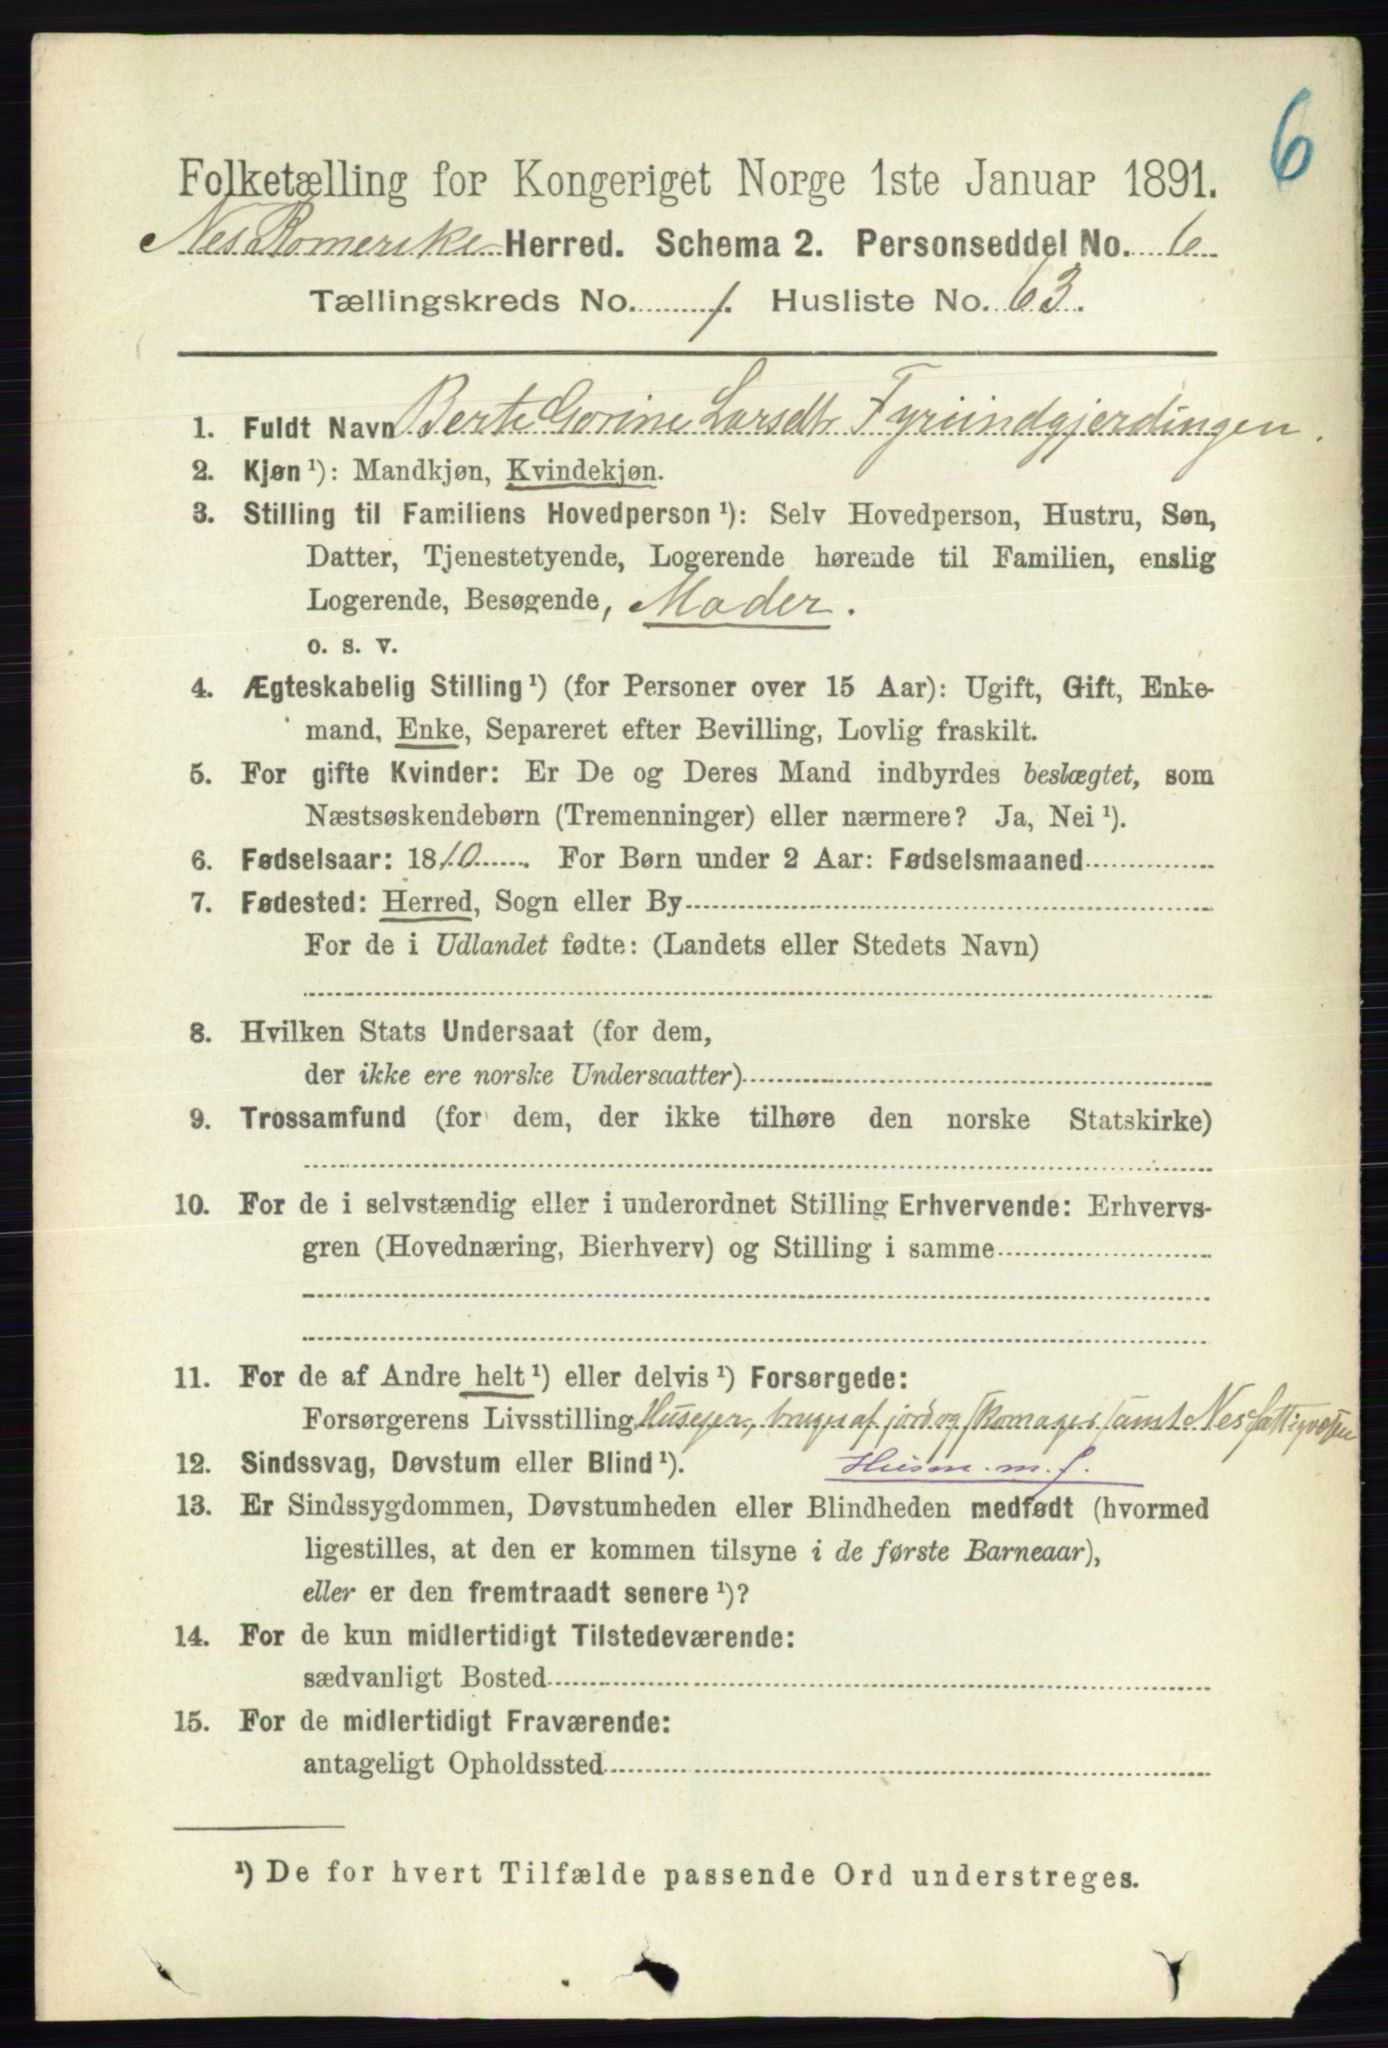 6
Folketælling for Kongeriget Norge 1ste Januar 1891.
Nes Romerike Herred. Schema 2. Personseddel No. 6
Tællingskreds No. 1. Husliste No. 63.
1. Fuldt Navn Berte Gorine Larsdtr Fyriindgjerdingen.
2. Kjøn¹): Mandkjøn, Kvindekjøn.
3. Stilling til Familiens Hovedperson¹): Selv Hovedperson, Hustru, Søn,
Datter, Tjenestetyende, Logerende hørende til Familien, enslig
Logerende, Besøgende, Moder.
o. s. v.
4. Ægteskabelig Stilling¹) (for Personer over 15 Aar): Ugift, Gift, Enke-
mand, Enke, Separeret efter Bevilling, Lovlig fraskilt.
5. For gifte Kvinder: Er De og Deres Mand indbyrdes beslægtet, som
Næstsøskendebørn (Tremenninger) eller nærmere? Ja, Nei¹).
6. Fødselsaar: 1810. For Børn under 2 Aar: Fødselsmaaned
7. Fødested: Herred, Sogn eller By
For de i Udlandet fødte: (Landets eller Stedets Navn)
8. Hvilken Stats Undersaat (for dem,
der ikke ere norske Undersaatter)
9. Trossamfund (for dem, der ikke tilhøre den norske Statskirke)
10. For de i selvstændig eller i underordnet Stilling Erhvervende: Erhvervs-
gren (Hovednæring, Bierhverv) og Stilling i samme
11. For de af Andre helt¹) eller delvis¹) Forsørgede:
Forsørgerens Livsstilling Huseier, bruger af jord og Skomager samt Nes fattigvæsen
12. Sindssvag, Døvstum eller Blind¹). Husm. m. j.
13. Er Sindssygdommen, Døvstumheden eller Blindheden medfødt (hvormed
ligestilles, at den er kommen tilsyne i de første Barneaar),
eller er den fremtraadt senere¹)?
14. For de kun midlertidigt Tilstedeværende:
sædvanligt Bosted
15. For de midlertidigt Fraværende:
antageligt Opholdssted
¹) De for hvert Tilfælde passende Ord understreges.